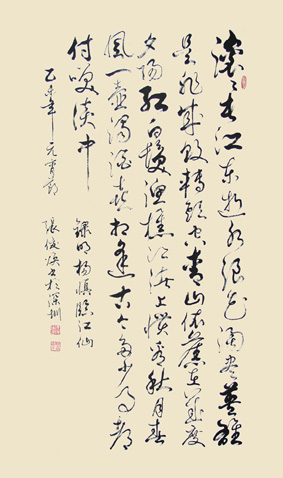 滚々长江东逝水浪花淘尽英雄
是非成败转头空青山依旧在几度
夕阳红白髮渔樵江渚上惯看秋月春
风一壶浊酒喜相逢古今多少事都
付笑谈中
年元宵节
录明杨慎临江仙
张俊书于深圳